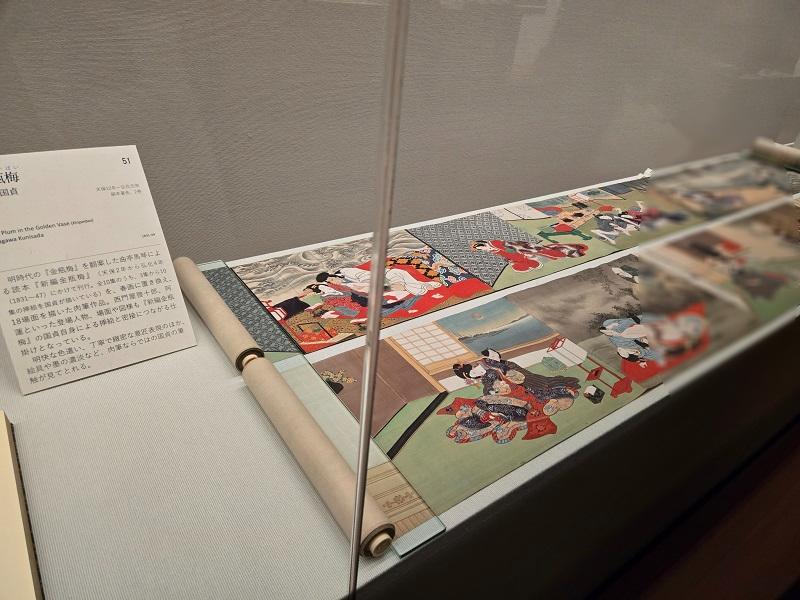 51
瓶梅
国貞
天保12年～弘化元年
絹本着色、2巻
Plum in the Golden Vase (Kinpeibai)
gawa Kunisada
1841-44
明時代の『金瓶梅』を翻案した曲亭馬琴によ
る読本『新編金瓶梅』（天保2年から弘化4年
（1831—47）にかけて刊行。全10集のうち、3集から10
集の挿絵を国貞が描いている）を、春画に置き換え、
18場面を描いた肉筆作品。西門屋啓十郎、阿
蓮といった登場人物、場面や図様も『新編金瓶
梅』の国貞自身による挿絵と密接につながる仕
掛けとなっている。
明快な色遣い、丁寧で緻密な着衣表現のほか、
絵具や墨の濃淡など、肉筆ならではの国貞の筆
触が見てとれる。